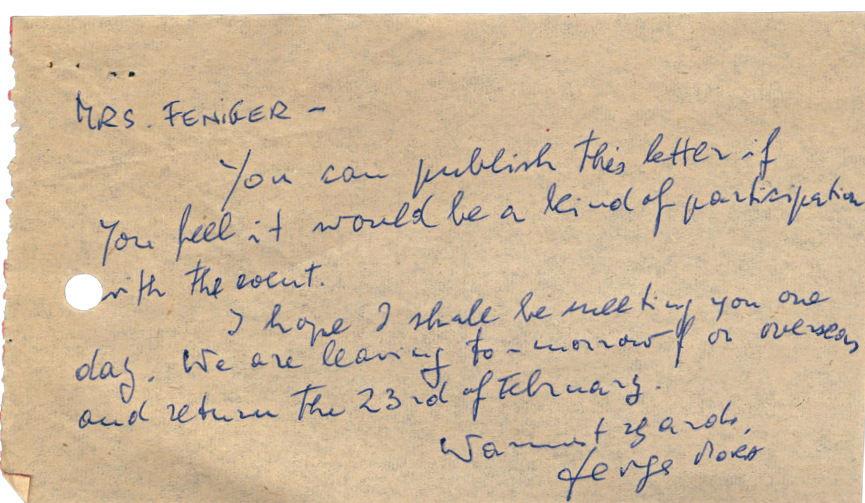 MRS. FENIGER -
You can publish this letter if
You feel it would be a kind of participation
with the event.
I hope I shall be meeting you one
day. We are leaving to-morrow for overseas
and return the 23rd of February.
Warmest regards,